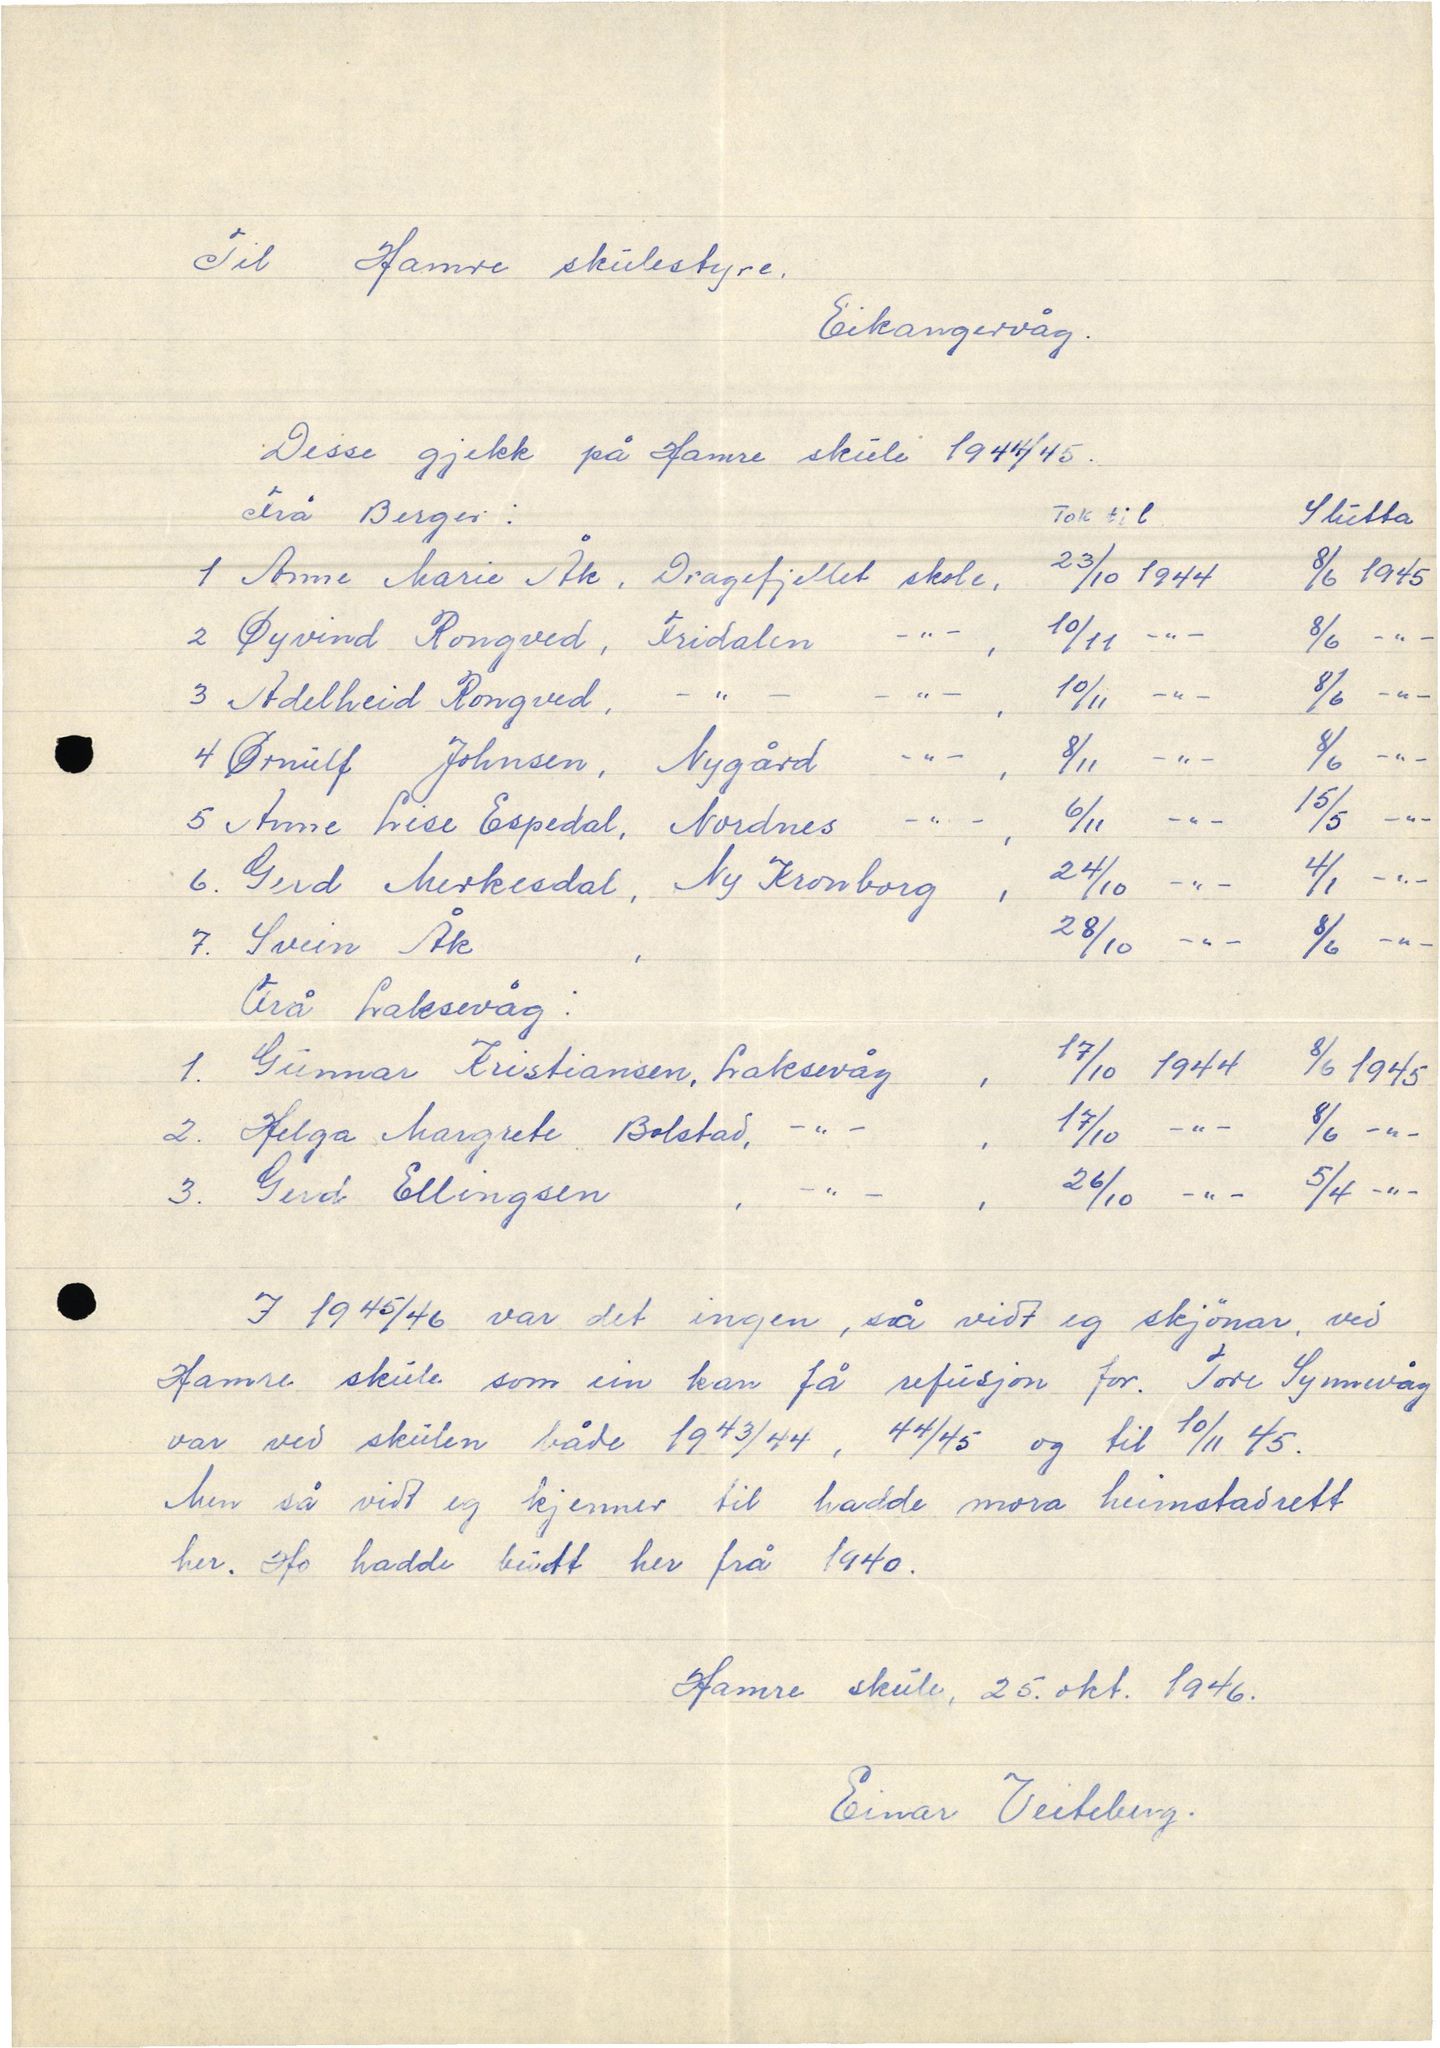 Til Hamre skulestyre.
Eikangervåg.
Disse gjekk på Hamre skule 1944/45.
Frå Bergen: Tok til Slutta
1 Anne Marie Åk, Dragefjellet skole, 23/10 1944 8/6 1945
2 Øyvind Rongved, Fridalen -"- , 10/11 -"- 8/6 -"-
3 Adelheid Rongved, -"- -"- , 10/11 -"- 8/6 -"-
4 Ørnulf Johnsen, Nygård -"- , 8/11 -"- 8/6 -"-
5 Anne Lise Espedal, Nordnes -"- , 6/11 -"- 15/5 -"-
6. Gerd Merkesdal, Ny Kronborg , 24/10 -"- 4/1 -"-
7. Svein Åk , 28/10 -"- 8/6 -"-
Frå Laksevåg:
1. Gunnar Kristiansen, Laksevåg , 17/10 1944 8/6 1945
2. Helga Margrete Bolstad, -"- , 17/10 -"- 8/6 -"-
3. Gerd Ellingsen , -"- , 26/10 -"- 5/4 -"-
I 1945/46 var det ingen, så vidt eg skjönar, ved
Hamre skule som ein kan få refusjon for. Tore Synnevåg
var ved skulen både 1943/44, 44/45 og til 10/11 45.
Men så vidt eg kjenner til hadde mora heimstadrett
her. Ho hadde budt her frå 1940.
Hamre skule, 25. okt. 1946.
Einar Veiteberg.